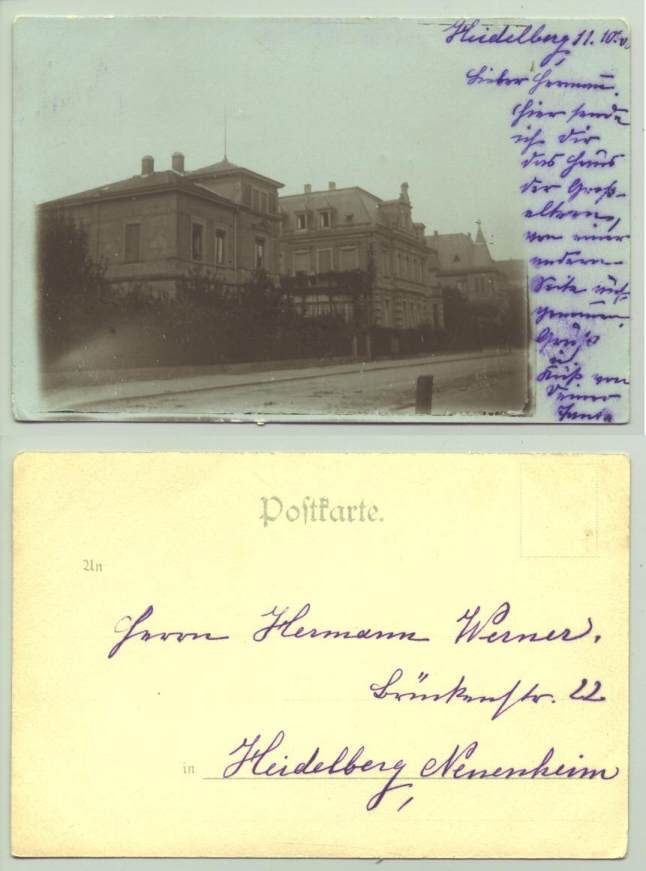 Heidelberg 11. 10.
Lieber Hermann.
Hier sende
ich Dir
das Haus
der Groß-
eltern,
von einer
andern
Seite auf-
genommen.
Gruß
u.
Kuß von
Deiner
Tante
Postkarte.
An
Herrn Hermann Werner.
Brückenstr. 22
in Heidelberg Neuenheim